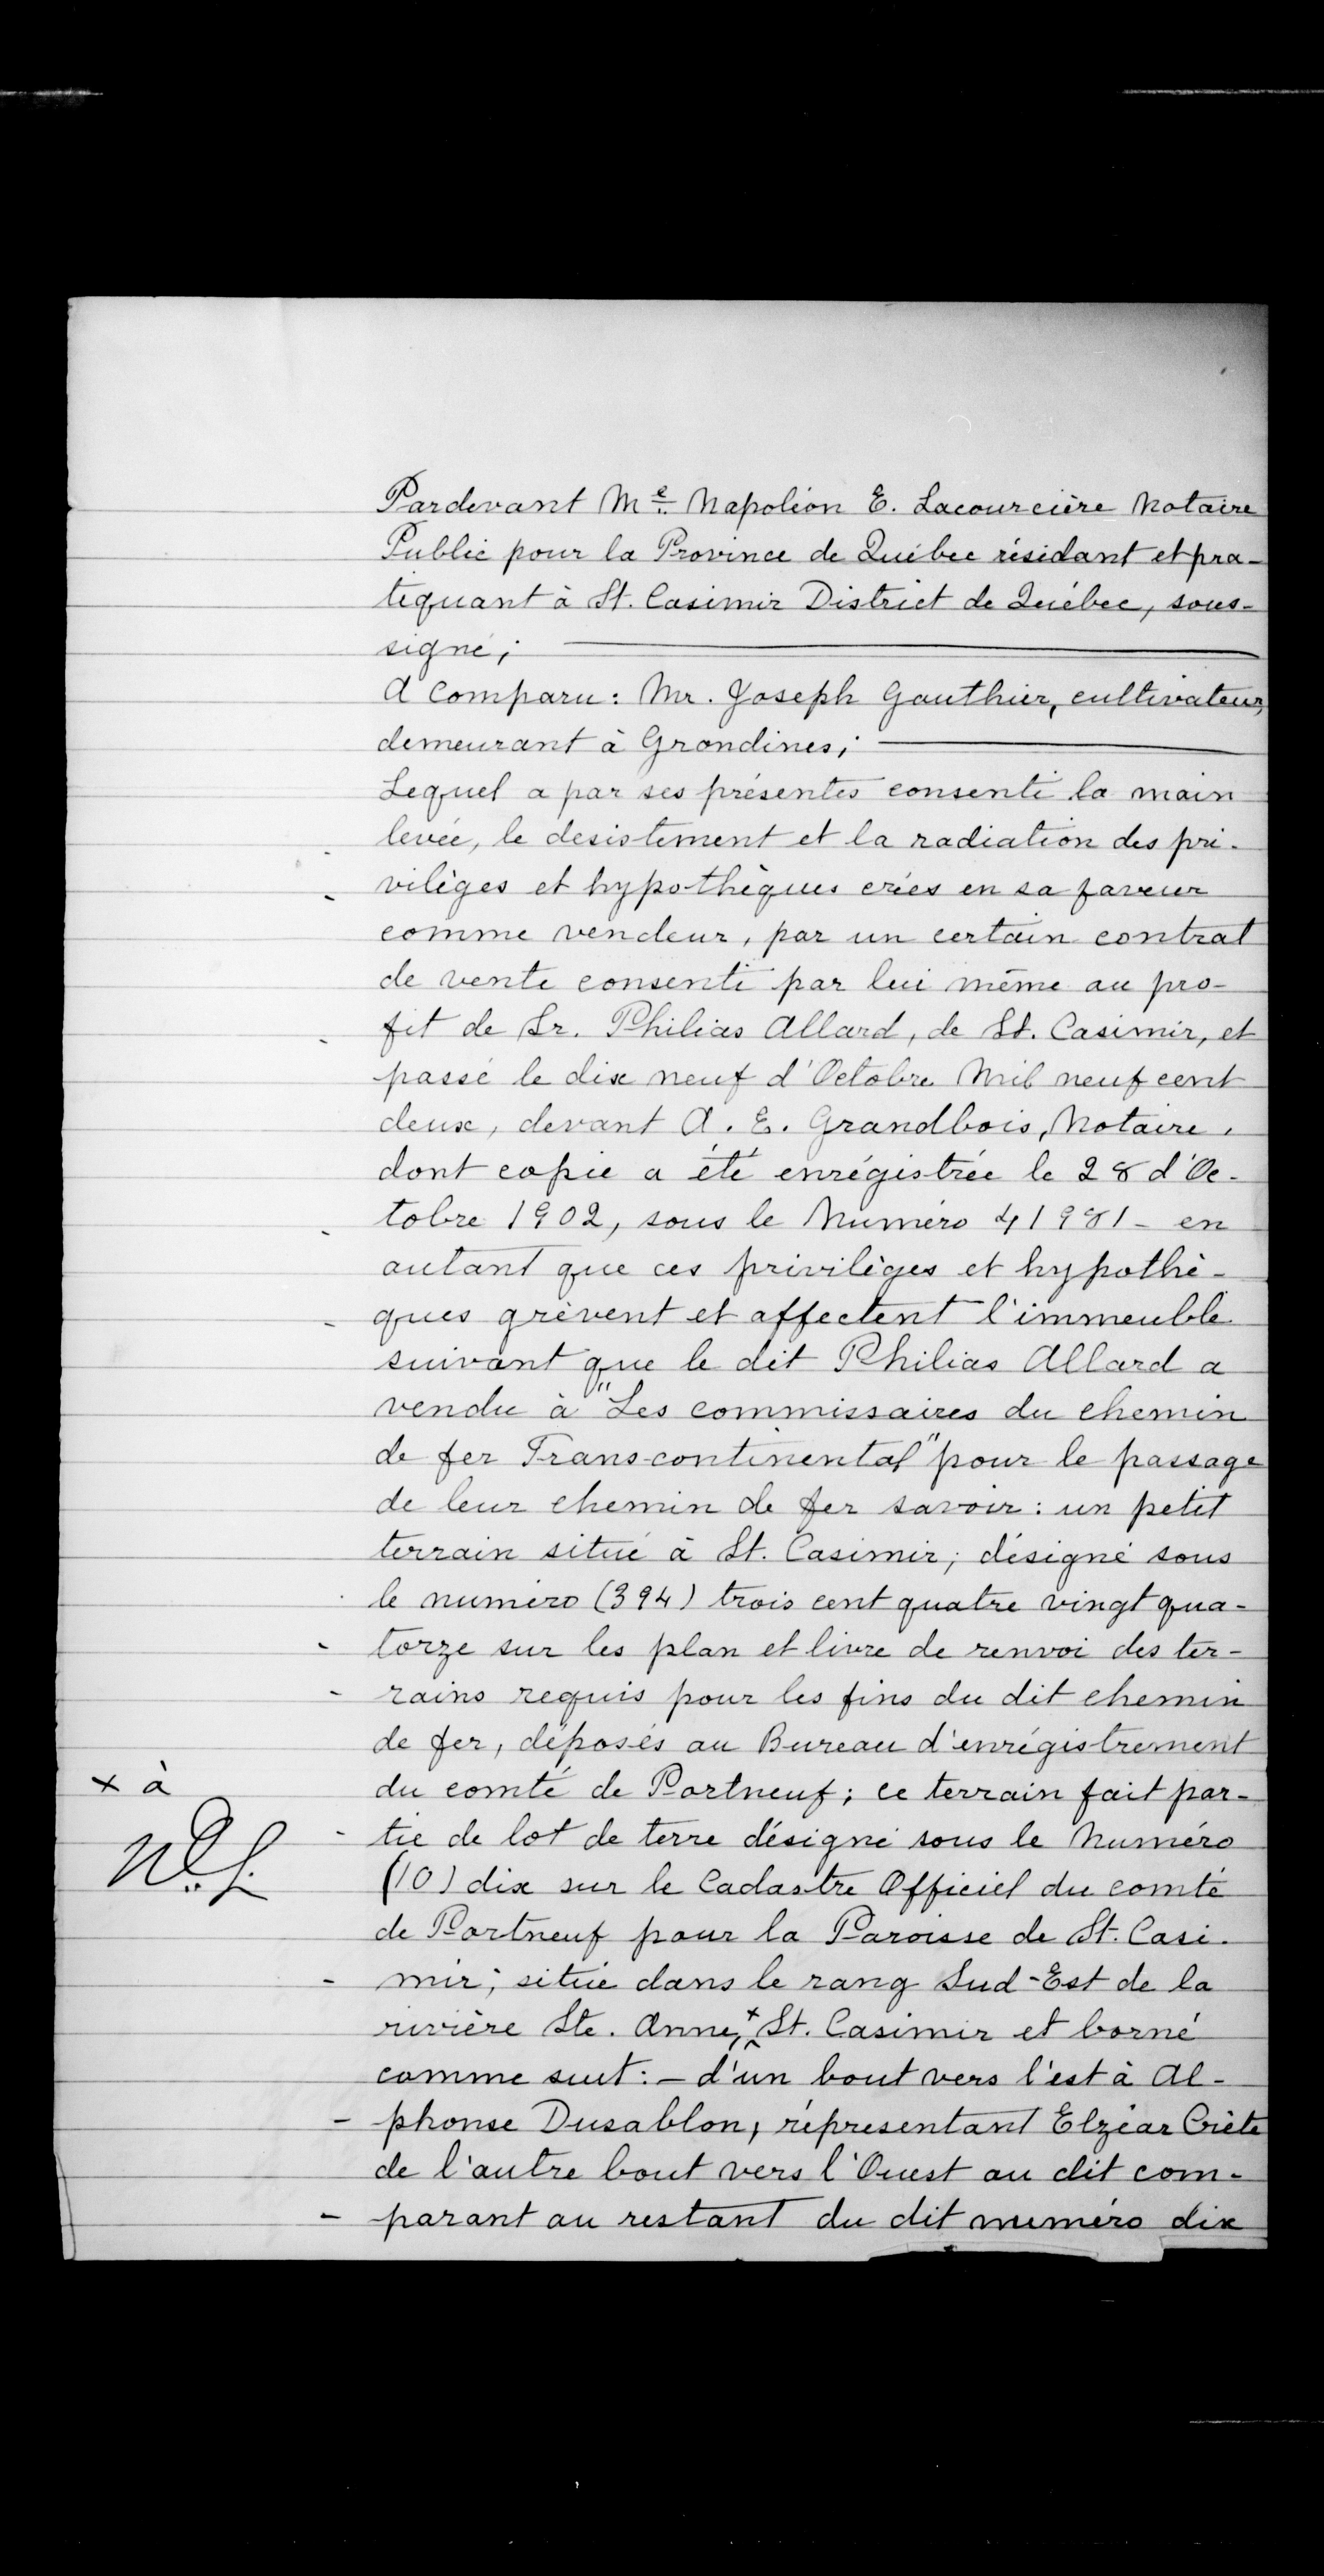 Pardevant Me. Napoléon E. Lacourcière Notaire
Public pour la Province de Québec résidant et pra-
tiquant à St. Casimir District de Québec, sous-
signé;
A Comparu: Mr. Joseph Gauthier, cultivateur,
demeurant à Grondines;
Lequel a par ses présentes consenti la main
levée, le desistement et la radiation des pri-
vilèges et hypothèques créés en sa faveur
comme vendeur, par un certain contrat
de vente consenti par lui même au pro-
fit de Sr. Philias Allard, de St. Casimir, et
passé le dix neuf d'Octobre Mil neuf cent
deux, devant A. E. Grandbois, Notaire,
dont copie a été enrégistrée le 28 d'Oc-
tobre 1902, sous le Numéro 41981 - en
autant que ces privilèges et hypothè-
ques grèvent et affectent l'immeuble
suivant que le dit Philias Allard a
vendu à "Les commissaires du chemin
de fer Trans-continental" pour le passage
de leur chemin de fer savoir: un petit
terrain situé à St. Casimir; désigné sous
le numéro (394) trois cent quatre vingt qua-
torze sur les plan et livre de renvoi des ter-
rains requis pour les fins du dit chemin
de fer, déposés au Bureau d'enrégistrement
x à
du comté de Portneuf; ce terrain fait par-
tie de lot de terre désigné sous le Numéro
(10) dix sur le Cadastre Officiel du comté
de Portneuf pour la Paroisse de St. Casi-
mir; situé dans le rang Sud-Est de la
rivière Ste. Anne, x St. Casimir et borné
comme suit: - d'un bout vers l'est à Al-
phonse Dusablon, répresentant Elzéar Crête
de l'autre bout vers l'Ouest au dit com-
parant au restant du dit numéro dix